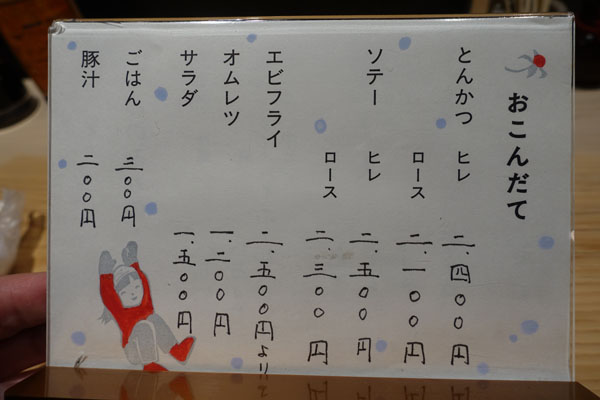 おこんだて
とんかつ ヒレ 二、四〇〇円
ロース 二、一〇〇円
ソテー ヒレ 二、五〇〇円
ロース 二、三〇〇円
エビフライ 二、五〇〇円より
オムレツ 一、二〇〇円
サラダ 一、五〇〇円
ごはん 三〇〇円
豚汁 二〇〇円